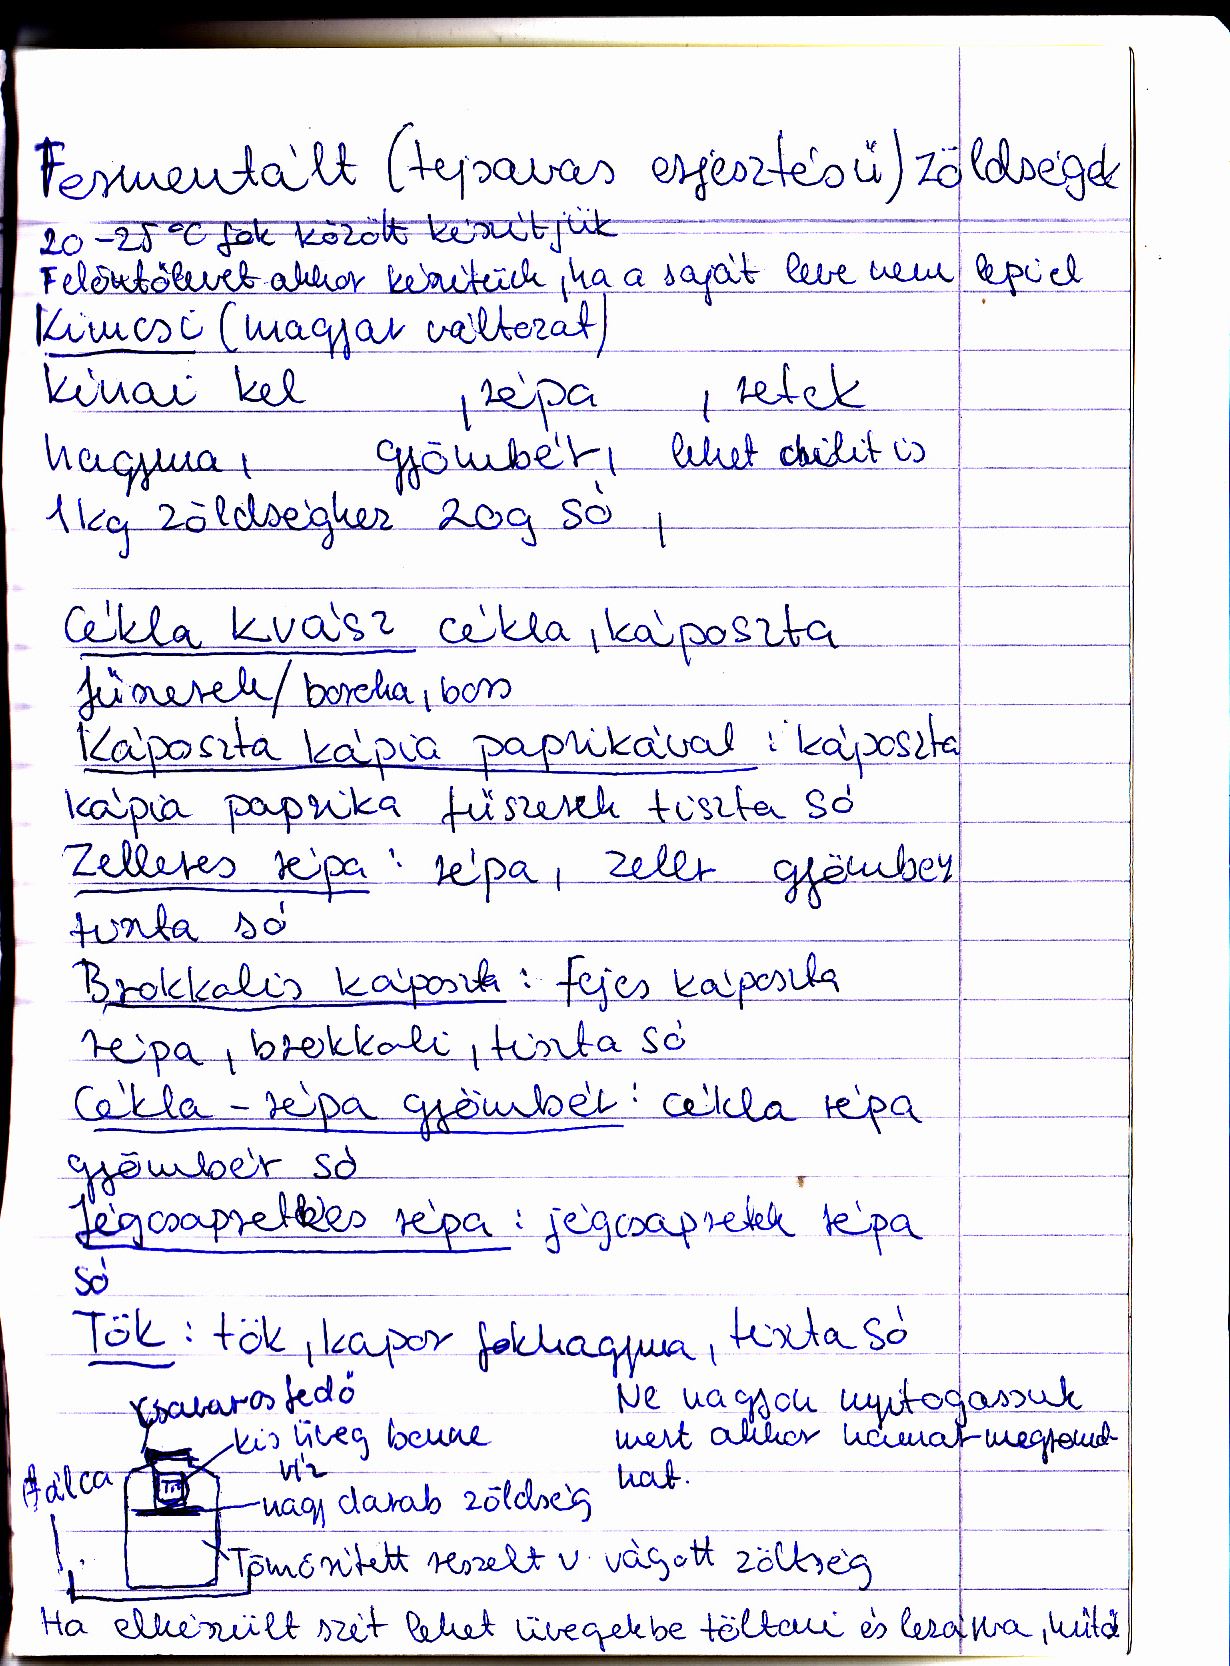 Fermentált (tejsavas erjesztésű) zöldségek
20-25 °C fok között készítjük
Felöntőlevet akkor készítünk, ha a saját leve nem lepi el
Kimcsi (magyar változat)
kínai kel , répa , retek
hagyma, gyömbér, lehet chilit is
1 kg zöldséghez 20g só ,
Cékla kvász cékla, káposzta
fűszerek/borcka, bors
Káposzta kápia paprikával : káposzta
kápia paprika fűszerek tiszta só
Zelleres répa : répa, zeller gyömbér
tiszta só
Brokkolis káposzta : fejes káposzta
répa, brokkoli, tiszta só
Cékla - répa gyömbér : cékla répa
gyömbér só
Jégcsapretkes répa : jégcsapretek répa
só
Tök : tök, kapor fokhagyma, tiszta só
csavaros fedő
kis üveg benne
víz
tálca
nagy darab zöldség
Tömörített reszelt v. vágott zöltség
Ne nagyon nyitogassuk
mert akkor hamar megromol-
hat.
Ha elkészült szét lehet üvegekbe tölteni és lezárva, hűtő